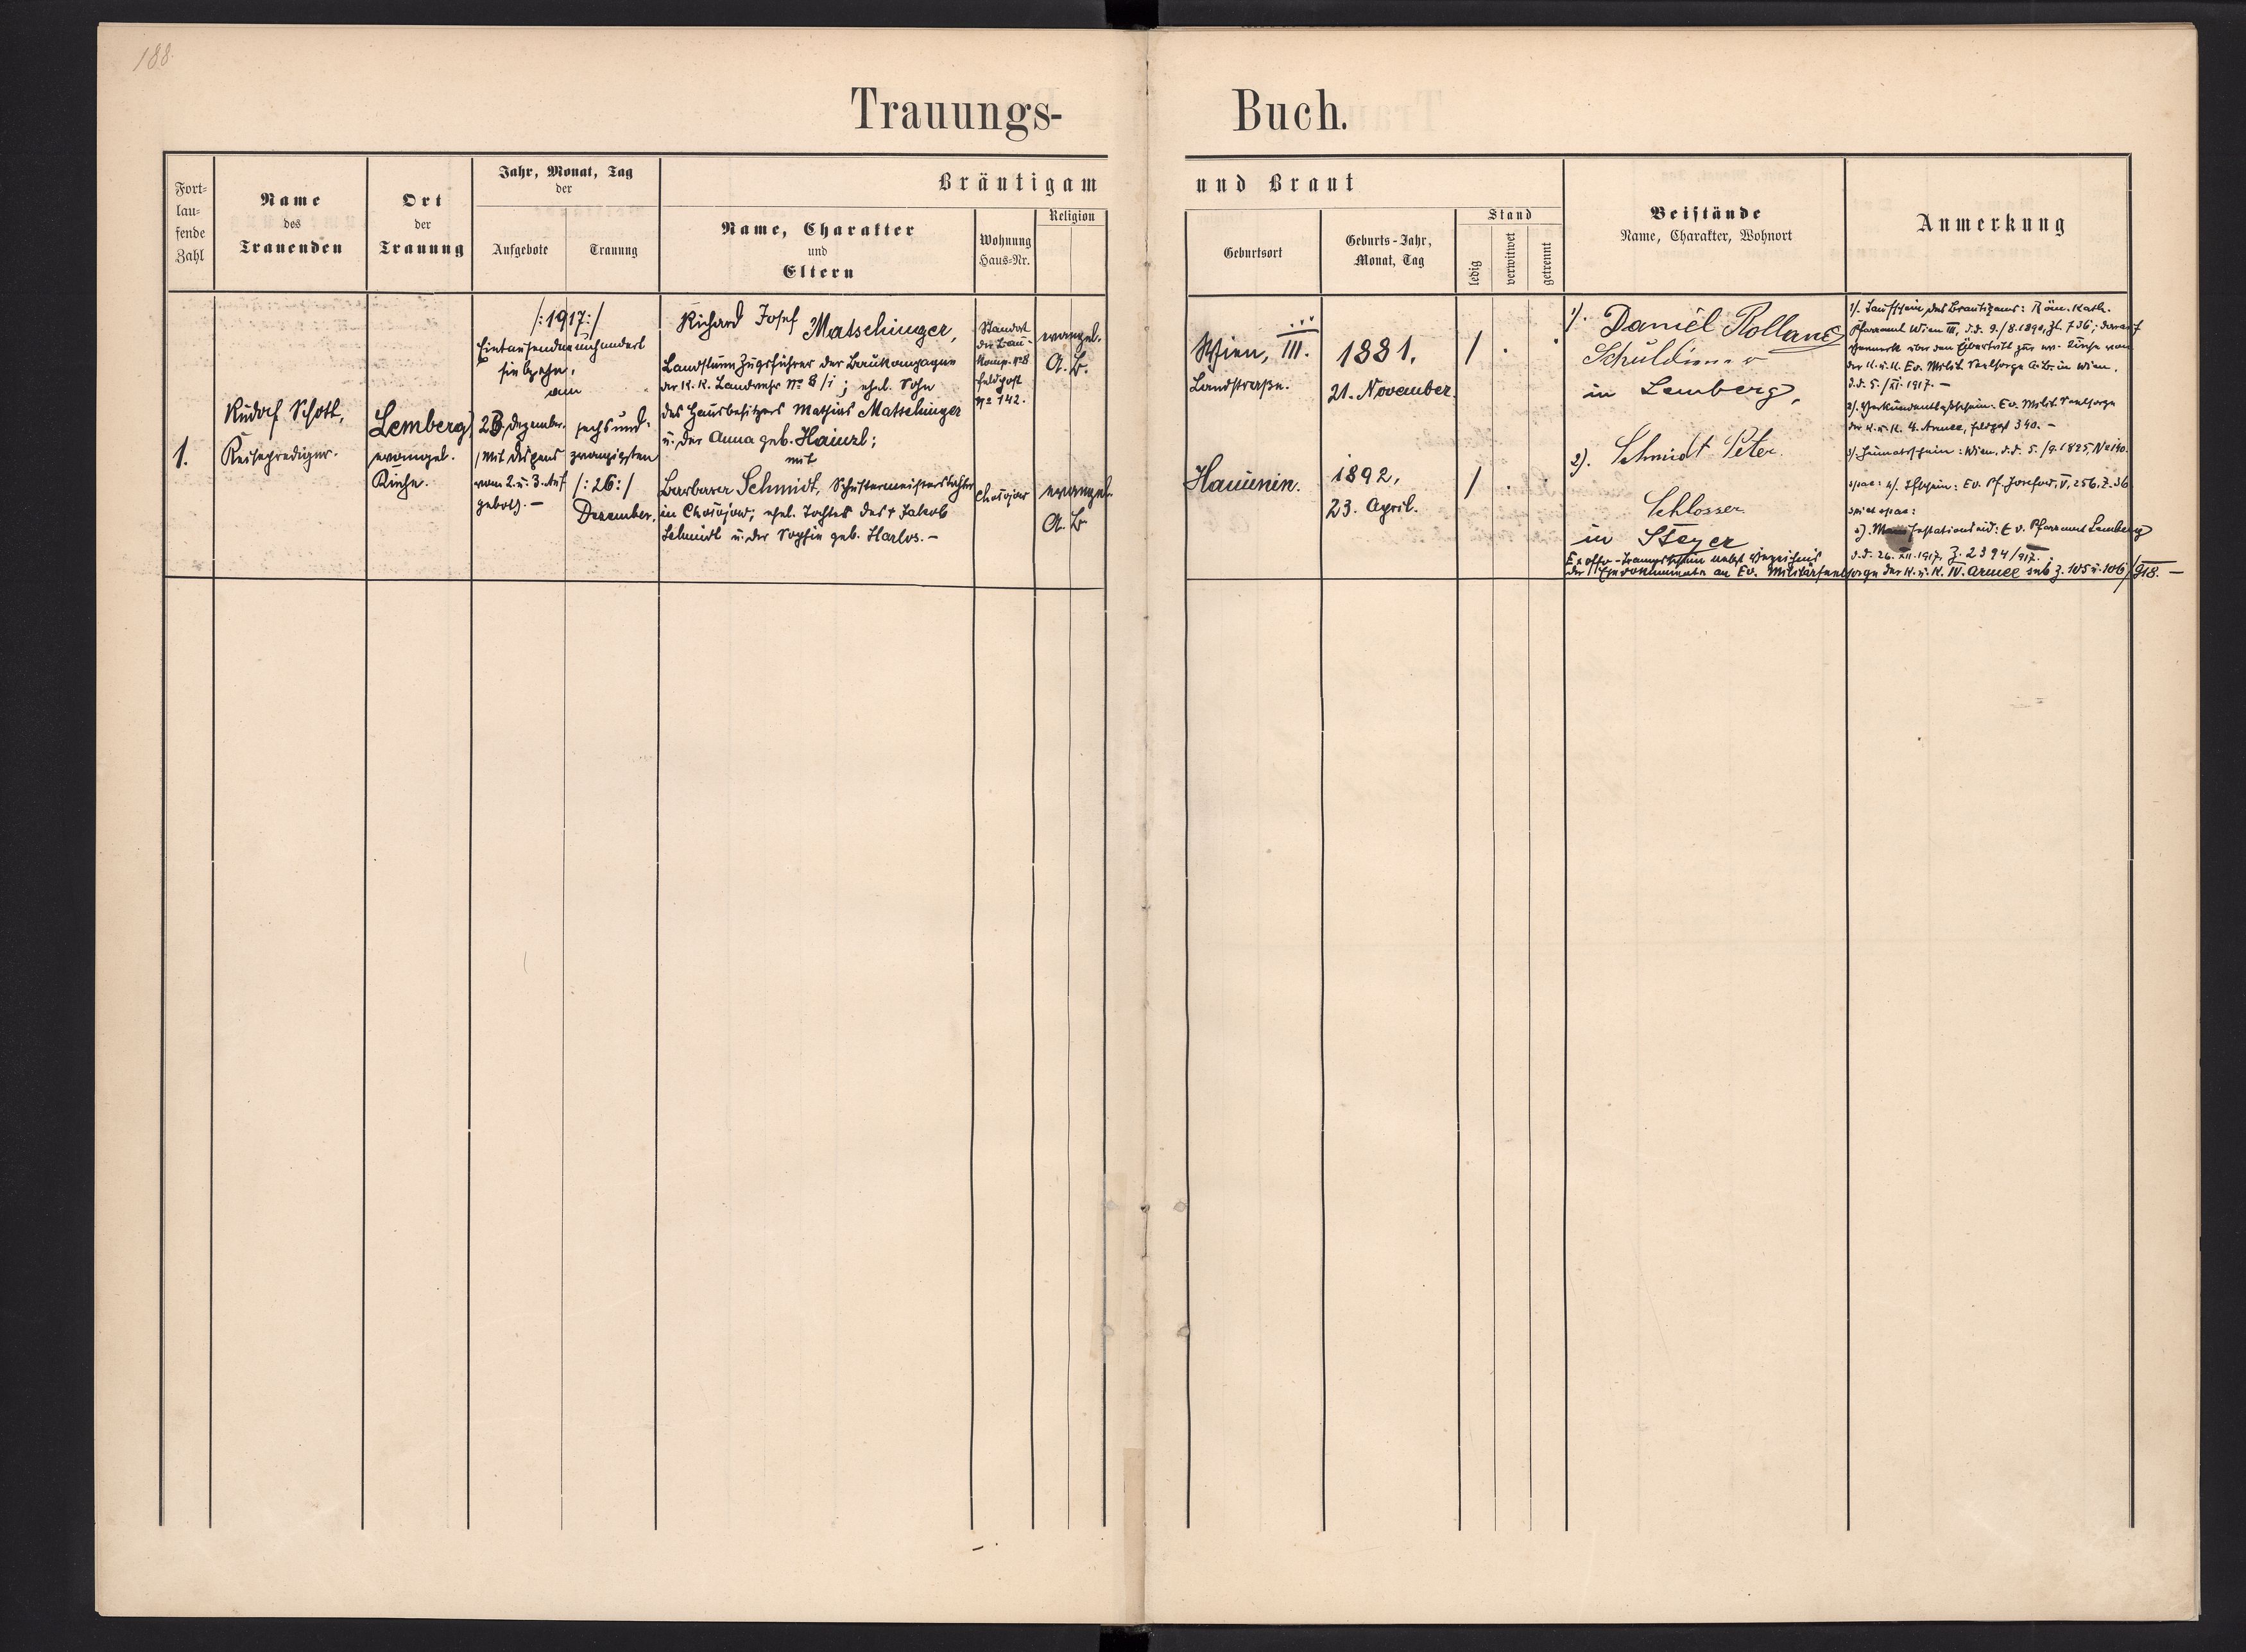 188.
Trauungs-
Buch.
Fort-
lau-
fende
Zahl
Name
des
Trauenden
Ort
der
Trauung
Jahr, Monat, Tag
der
Aufgebote
Trauung
Bräutigam
Name, Charakter
und
Eltern
Wohnung
Haus-Nr.
Religion
und Braut
Geburtsort
Geburts-Jahr,
Monat, Tag
Stand
ledig
verwitwet
getrennt
Beistände
Name, Charakter, Wohnort
Anmerkung
1.
Rudolf Schott,
Reiseprediger.
Lemberg,
evangel.
Kirche.
/:1917:/
Eintausendneunhundert
siebzehn,
am
23. Dezember.
/Mit Dispens
vom 2. u. 3. Auf-
gebots. –
sechsund-
zwanzigsten
/:26:/
Dezember.
Richard Josef Matschinger,
Landsturm Zugsführer der Baukompagnie
der K. K. Landwehr No 8/i; ehel. Sohn
des Hausbesitzers Mathias Matschinger
u. der Anna geb. Hainzl;
mit
Barbara Schmidt, Schustermeisterstochter
in Chorojow; ehel. Tochter des † Jakob
Schmidt u. der Sophie geb. Harlos. –
Standort
der Bau-
Komp. No 8
Feldpost
No 142.
evangel.
A. B.
evangel.
A. B.
Wien, III.
Landstraße.
1881.
21. November.
/
Hanunin.
1892,
23. April.
/
1). Daniel Rolland
in Lemberg,
2). Schmidt Peter.
Schlosser
in Steyer
1). Taufschein des Bräutigams: Röm. Kath.
Pfarramt Wien III, d.d. 9./8.1890, Zl. 736; darauf
Vermerk über den Übertritt zur ev. Kirche vom
der K. u. K. Ev. Milit. Seelsorge A. B. in Wien.
d.d. 5./XI. 1917. –
2). Verkündentlaßschein. Ev. Milit. Seelsorge
der K. u. K. 4. Armee, Feldpost 340. –
3). Heimatschein: Wien, d.d. 5./9.1895, No 190.
d.d. 26. XII. 1917, Z. 2394/917.
Ex offo-Trauungsschein nebst Verzeichnis
der Ehedokumente an Ev. Militärseelsorge der K. u. K. IV. Armee sub Z. 105 u. 106/918. –